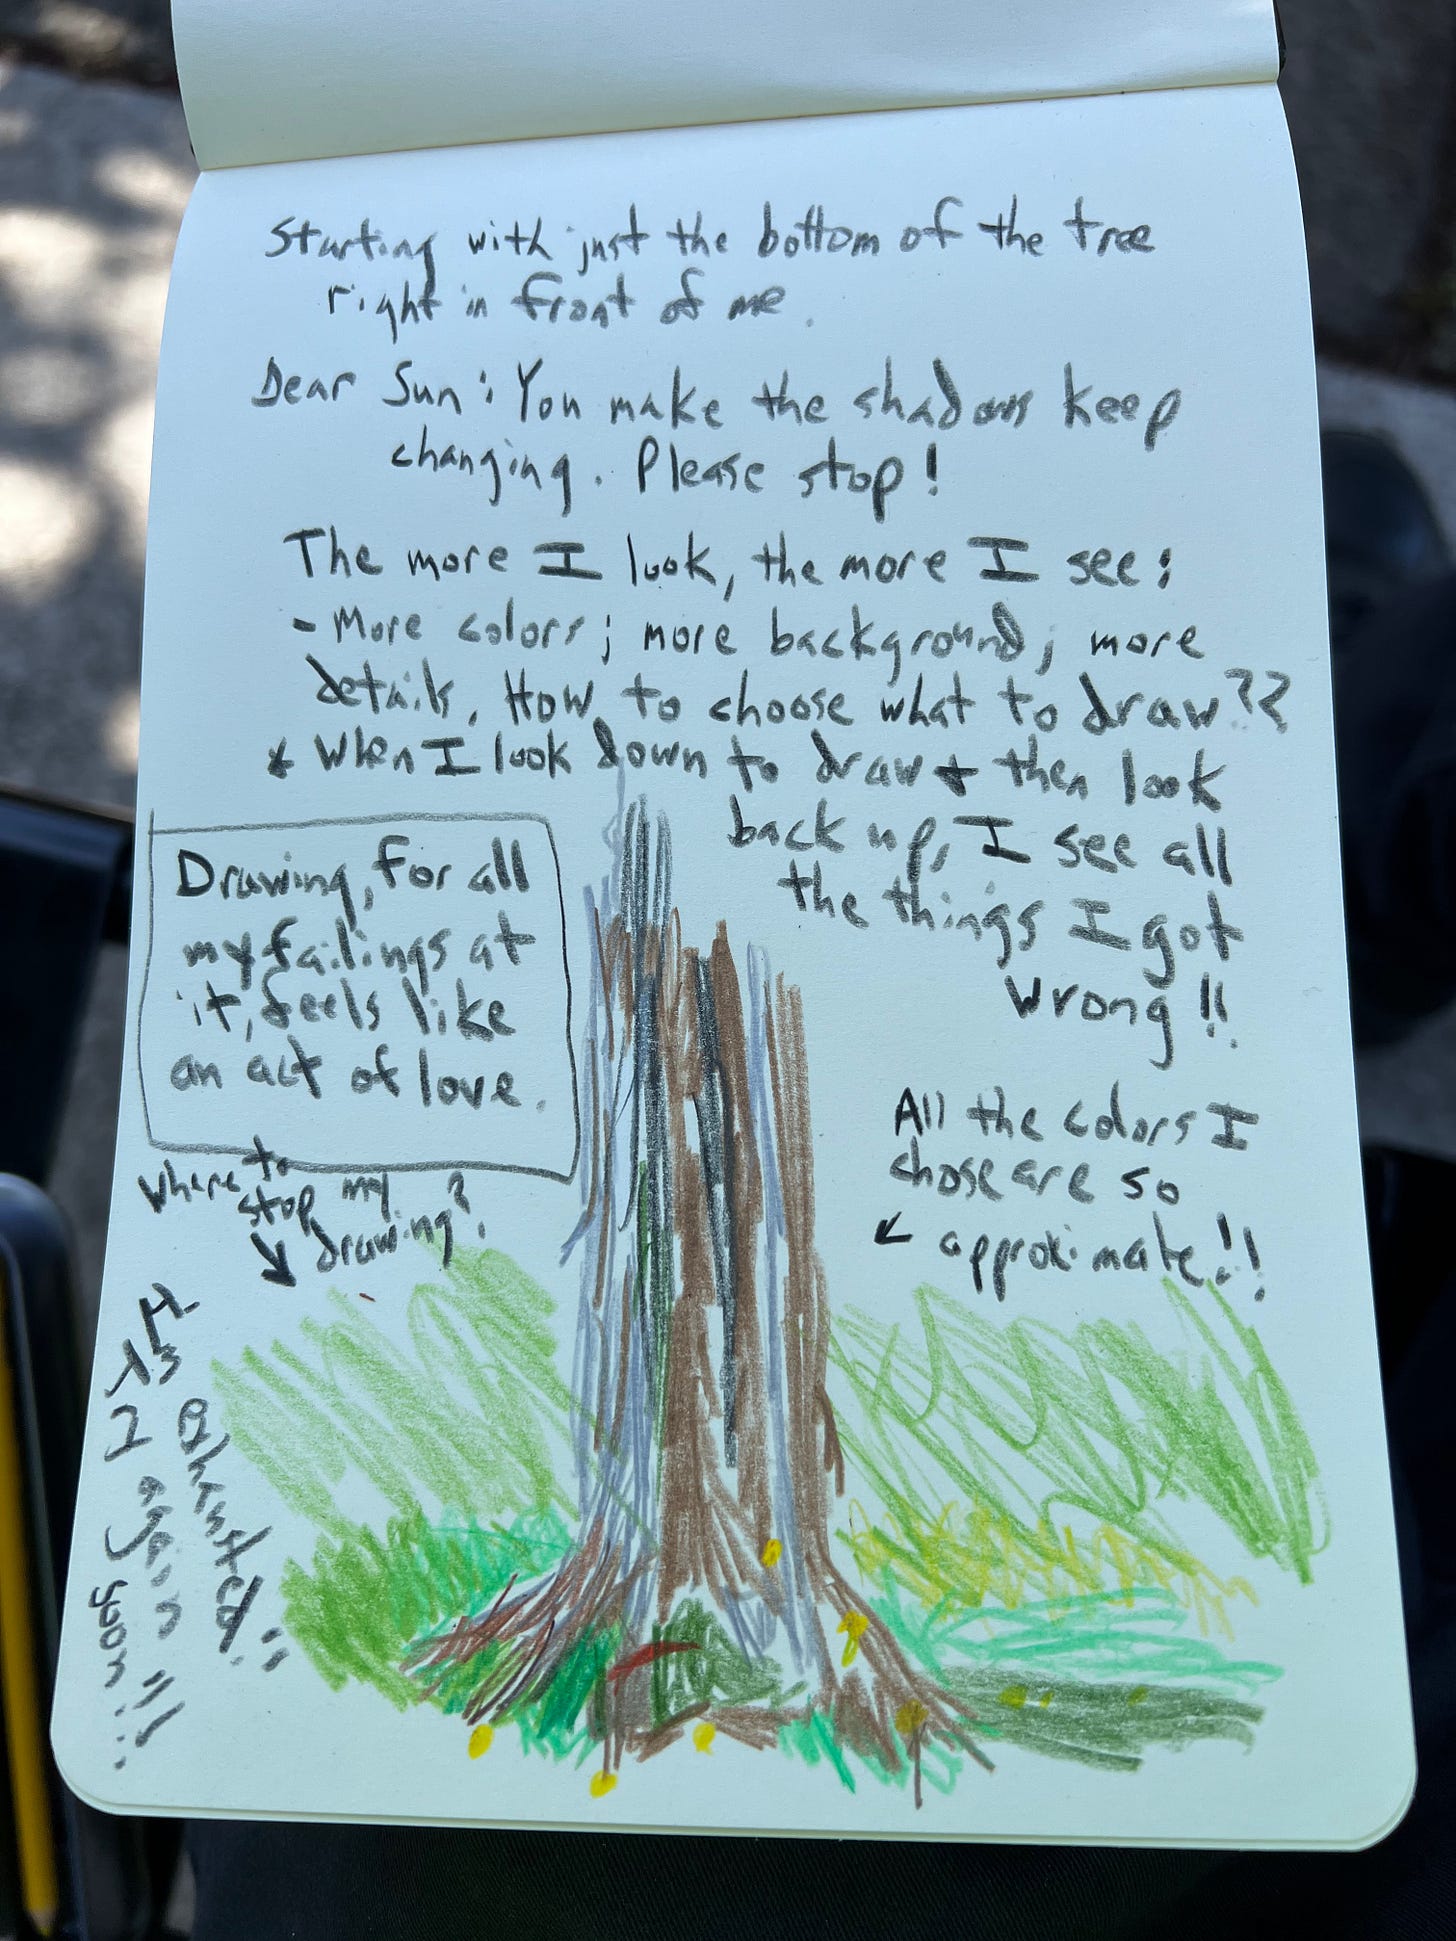 Starting with just the bottom of the tree
right in front of me.
Dear Sun: You make the shadows keep
changing. Please stop!
The more I look, the more I see:
- More colors; more background; more
details. How to choose what to draw??
* When I look down to draw + then look
back up, I see all
the things I got
wrong!!
Drawing, for all
my failings at
it, feels like
an act of love.
All the colors I
chose are so
← approximate!!
Where to
stop my
↓ drawing?
I again